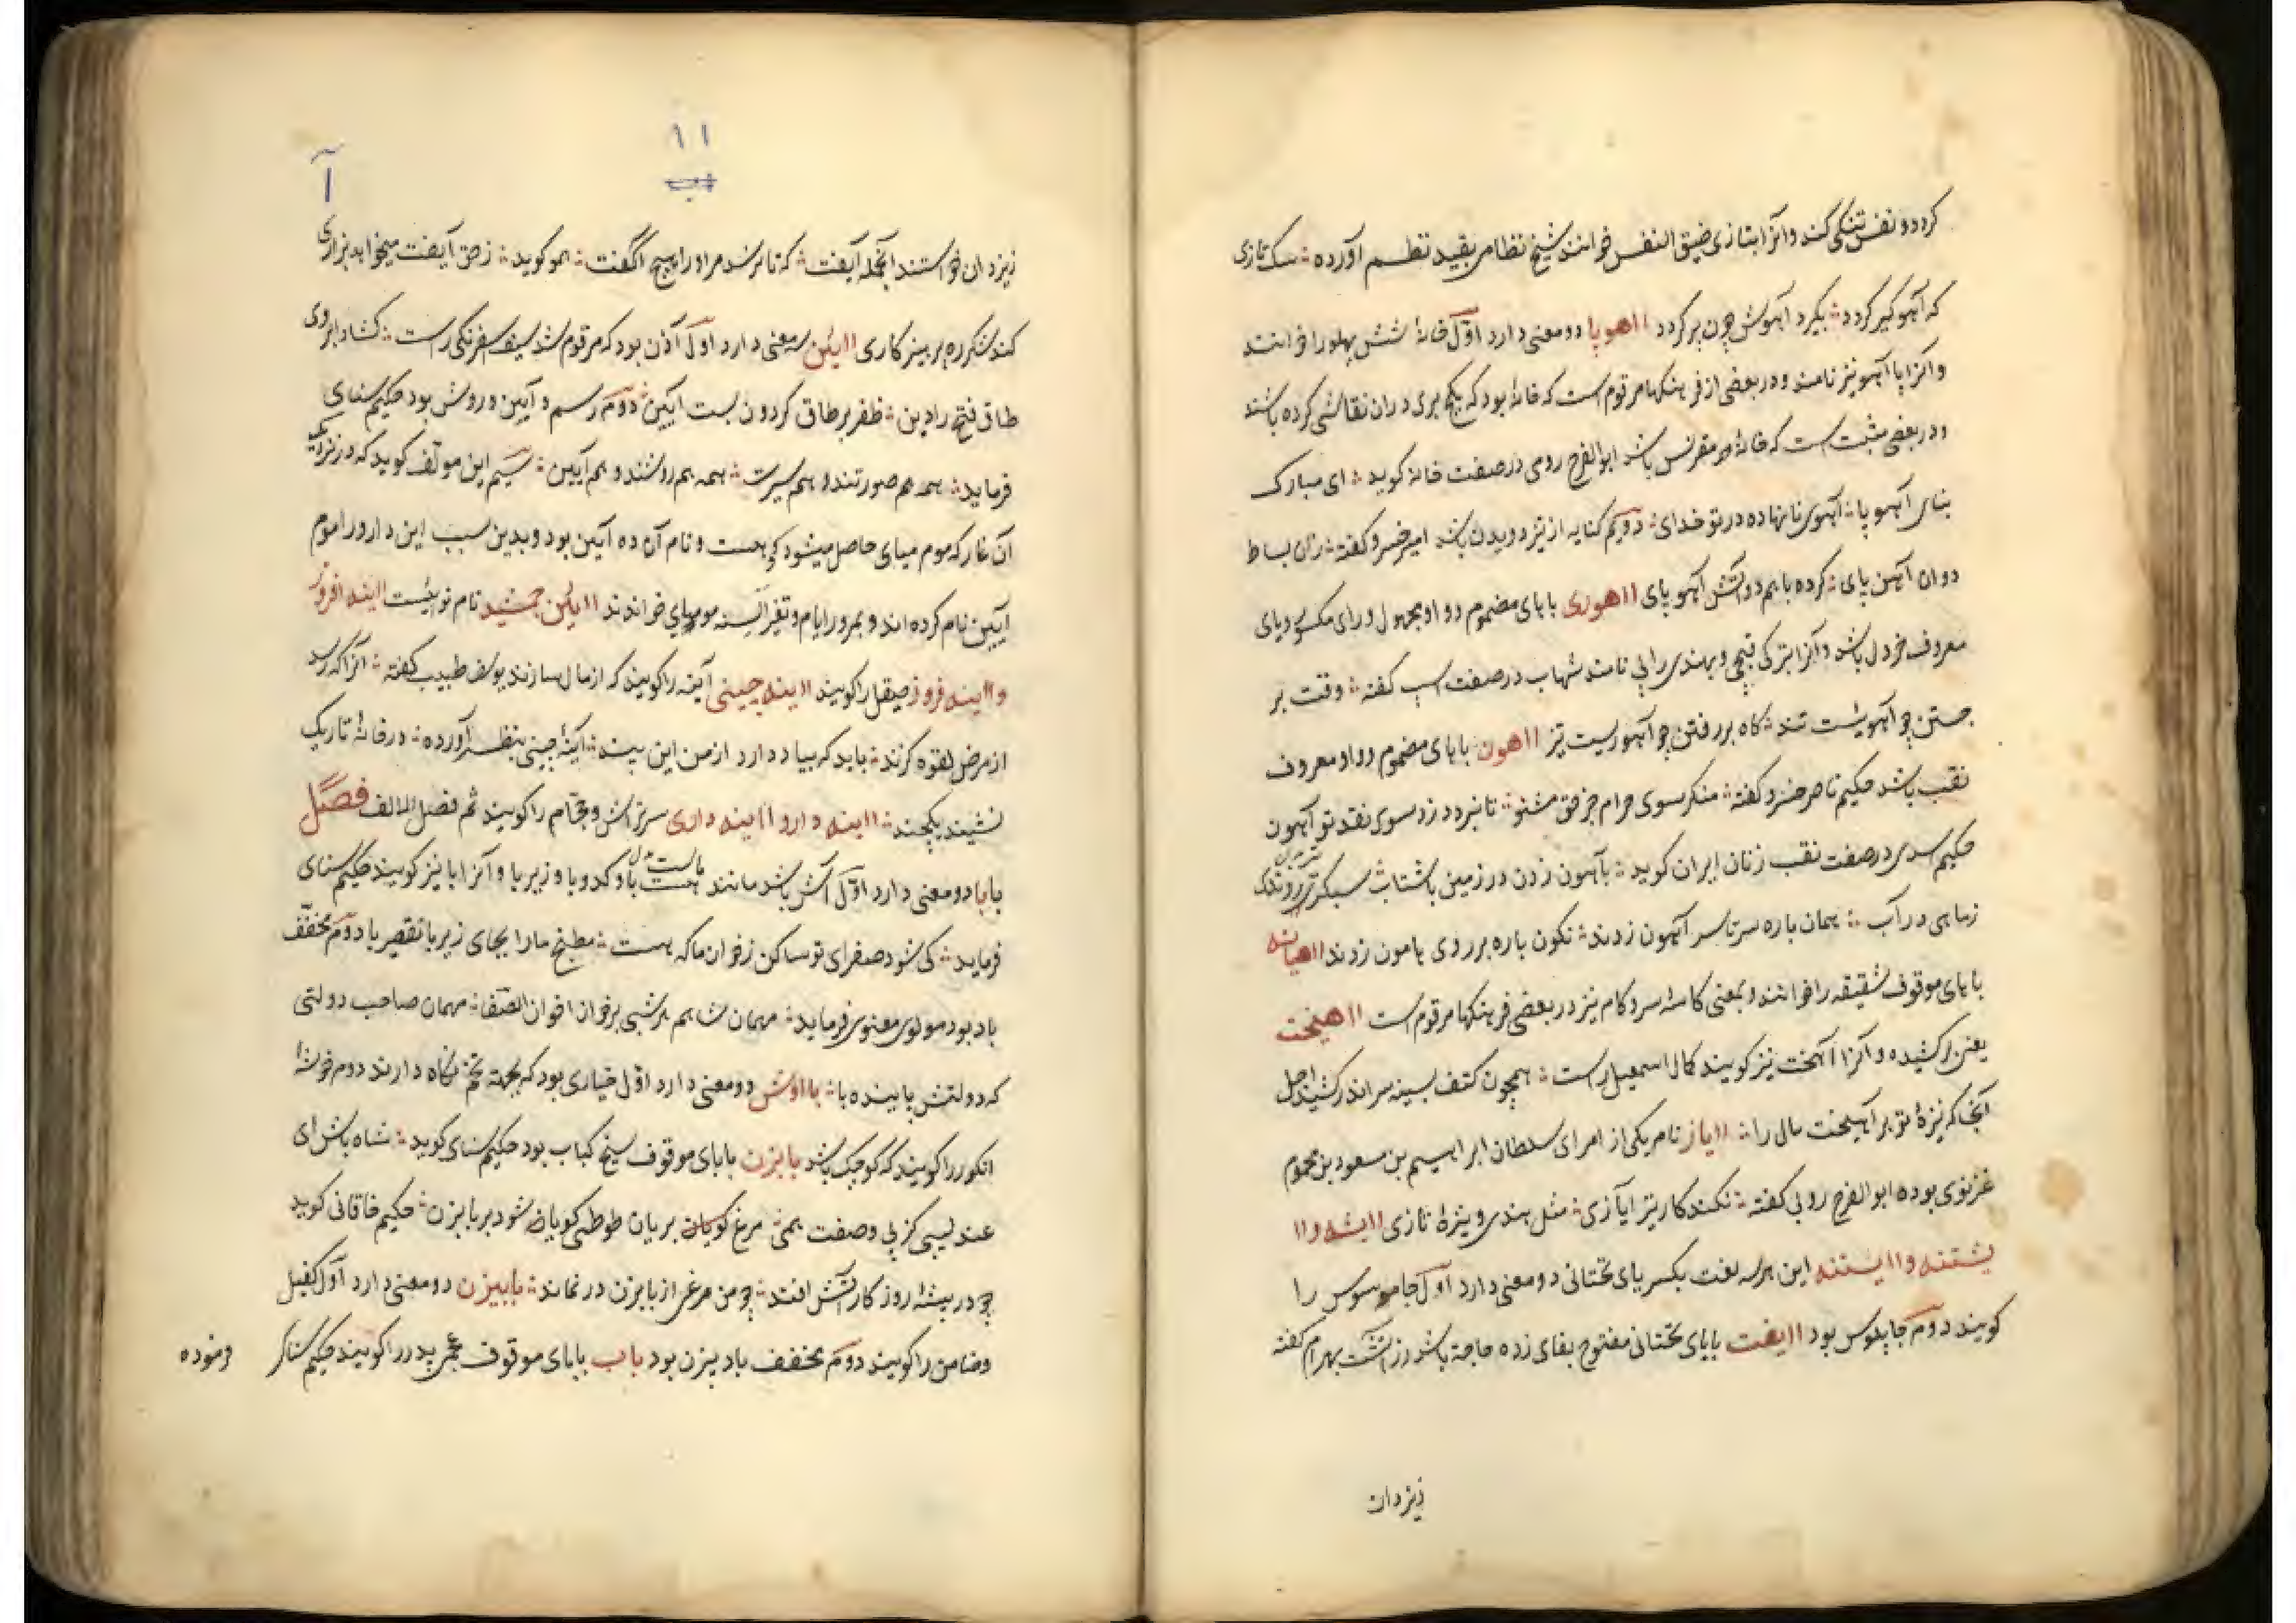 کردد و نفس تنکی کند و آنرا بتازی ضیق النفس خوانند شیخ نظامی بقید نظم آورده سک تازی
که آهو گیر گردد بگیرد آهوش چون پیر گردد ااهوپا دو معنی دارد اول خانهٔ شش پهلو را خوانند
و آنرا پا آهو نیز نامند و در بعضی از فرهنگها مرقوم است که خانهٔ بود که بگچ بری در آن نقاشی کرده باشند
و در بعضی مثبت است که خانهٔ مقرنس باشد ابوالفرج رومی در صفت خانه کوید ای مبارک
بنای آهو پا آهوی نانهاده در تو خدای دویم کنایه از تیز دویدن باشد امیر خسرو کفته زان بساط
دوان آهن پای کرده باهم دو آتش آهو پای ااهوری باهای مضموم و واو مجهول و رای مکسور و یای
معروف خردل باشد و آنرا بترکی قچی و بهندی رایی نامند شهاب در صفت اسپ کفته وقت بر
جستن چو آهویست تند کاه بر رفتن چو آهوریست تیز ااهون باهای مضموم و واو معروف
نقب باشد حکیم ناصر خسرو کفته منکر سوی حرام جز حق مشنو تا نبرد دزد سوی نقد تو آهون
حکیم اسدی در صفت نقب زنان ایران کوید بآهون زدن در زمین باشتاب سبکتر روندی
زماهی در آب همان باره سرتاسر آهون زدند نکون باره بر روی هامون زدند ااهیانه
باهای موقوف شقیقه را خوانند و بمعنی کاسهٔ سر و کام نیز در بعضی فرهنگها مرقوم است ااهیخت
یعنی برکشیده و آنرا آهخت نیز کویند کمال اسمعیل راست همچون کشف بسینه سر اندر کشید اجل
آنجا که نیزهٔ تو بر آهیخت یال را ااياز نام یکی از امرای سلطان ابراهیم بن مسعود بن محمود
غزنوی بوده ابوالفرج رونی کفته نکند کار تیر ایازی مثل هندی و نیزهٔ تازی اایشه و اا
یشتنه و اایستنه این هر سه لغت بکسر یای تحتانی دو معنی دارد اول جاسوس را
کویند دوم چاپلوس بود اایفت بایای تحتانی مفتوح بفای زده حاجة باشد زراتشت بهرام کفته
یزدان
۱۱
آ
زیزدان خواستند آنجمله آیفت که تا نرسد مر او را هیچ آکفت همو کوید زحق آیفت میخواهد بزاری
کند شکر ره پرهیز کاری اایین سه معنی دارد اول آذین بود که مرقوم شد سیف اسفرنکی راست کشاد ابروی
طاق فتح را دین ظفر بر طاق کردون بست آیین دوم رسم و آیین و روش بود حکیم سنای
فرماید همه هم صورتند و هم سیرت همه هم روشند و هم آیین سیم این مولف کوید که در نزدیک
آن غار که موم میای حاصل میشود دهیست و نام آن ده آیین بود و بدین سبب این دارو را موم
آیین نام کرده اند و بمرور ایام و تغیر السنه مومیای خواندند اایین جمشید نام نوائیست ااینه افروز
و ااینه فروز صیقل را کویند ااینه چینی آینه را کویند که از مال سازند یوسف طبیب کفته آنرا که رسد
از مرض لقوه کزند باید که بیاد دارد از من این پند آینهٔ چینی بنظر آورده در خانهٔ تاریک
نشیند یکچند ااینه دارو ااینه داری سرتراش و حجام را کویند تم فصل الالف فصل
بابا دو معنی دارد اول آش باشد مانند ماست با و کدو با و زیر با و آنرا ابا نیز کویند حکیم سنای
فرماید کی شود صفرای تو ساکن ز خوان ما که هست مطبخ ما را بجای زیربا تقصیر با دوم مخفف
باد بود مولوی معنوی فرماید مهمان شاهم هر شبی بر خوان اخوان الصفا مهمان صاحب دولتی
که دولتش پاینده با بااوش دو معنی دارد اول خیاری بود که بجهة تخم نگاه دارند دوم خوشهٔ
انکور را کویند که کوچک باشد بابزن بابای موقوف سیخ کباب بود حکیم سنای کوید شاه باش ای
عندلیبی کز پی وصفت همی مرغ کویان بریان طوطی کویان شود بر بابزن حکیم خاقانی کوید
چو در بیشهٔ روزکار آتش افتد چو من مرغی از بابزن در نماند بابیزن دو معنی دارد اول کفیل
و ضامن را کویند دوم مخفف باد بیزن بود باب بابای موقوف پدر را کویند حکیم
فرموده